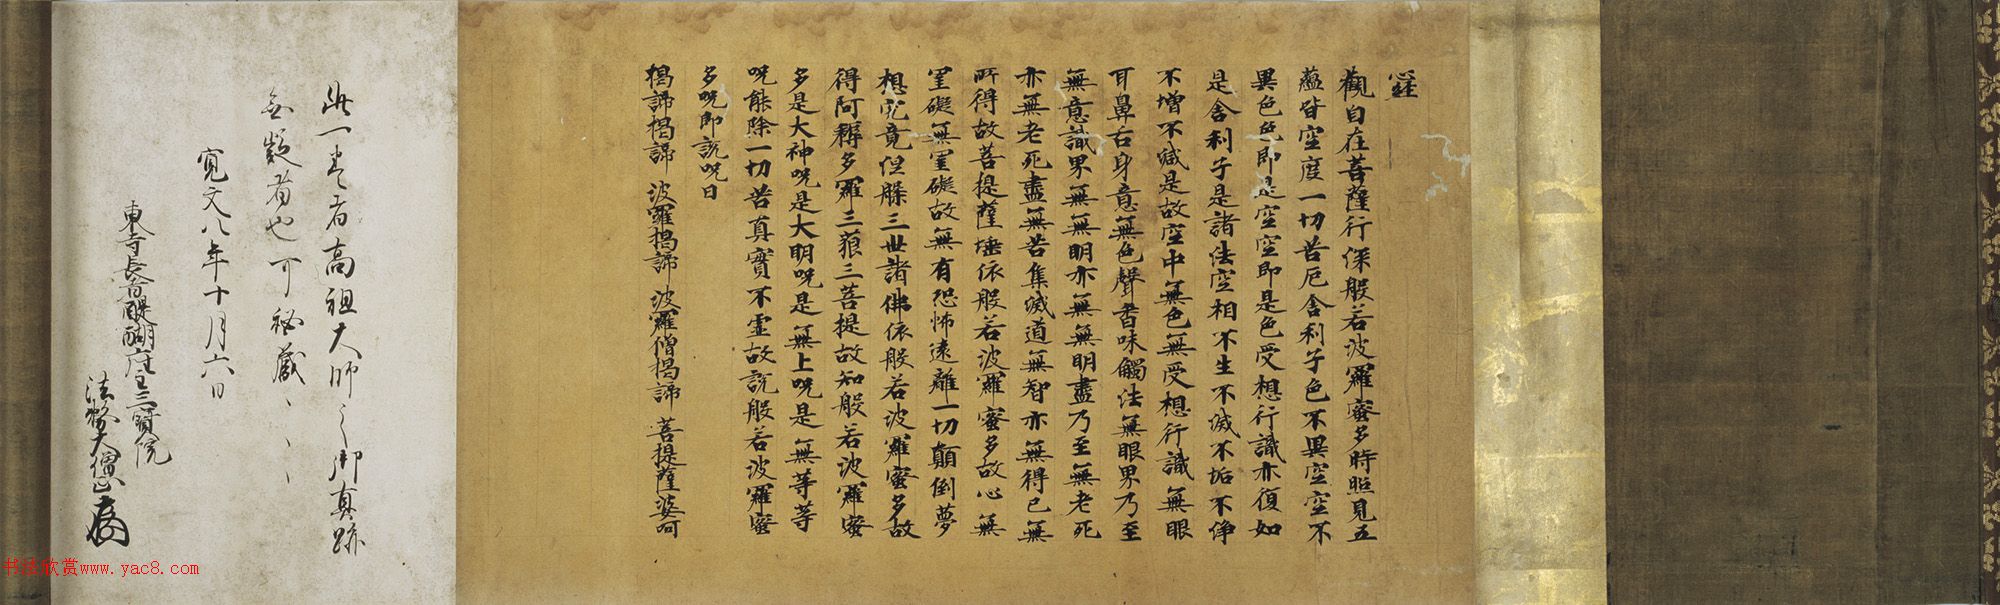 羅
觀自在菩薩行深般若波羅蜜多時照見五
蘊皆空度一切苦厄舍利子色不異空空不
異色色即是空空即是色受想行識亦復如
是舍利子是諸法空相不生不滅不垢不淨
不增不減是故空中無色無受想行識無眼
耳鼻舌身意無色聲香味觸法無眼界乃至
無意識界無無明亦無無明盡乃至無老死
亦無老死盡無苦集滅道無智亦無得已無
所得故菩提薩埵依般若波羅蜜多故心無
罣礙無罣礙故無有恐怖遠離一切顛倒夢
想究竟但髁三世諸佛依般若波羅蜜多故
得阿耨多羅三藐三菩提故知般若波羅蜜
多是大神呪是大明呪是無上呪是無等等
呪能除一切苦真實不虛故說般若波羅蜜
多呪即說呪曰
揭諦揭諦 波羅揭諦 波羅僧揭諦 菩提薩婆呵
此一卷者高祖大師之御真跡
無疑者也可秘藏
寛文八年十月六日
東寺長者醍醐座主三寶院
法務大僧正
书法欣赏www.yac8.com